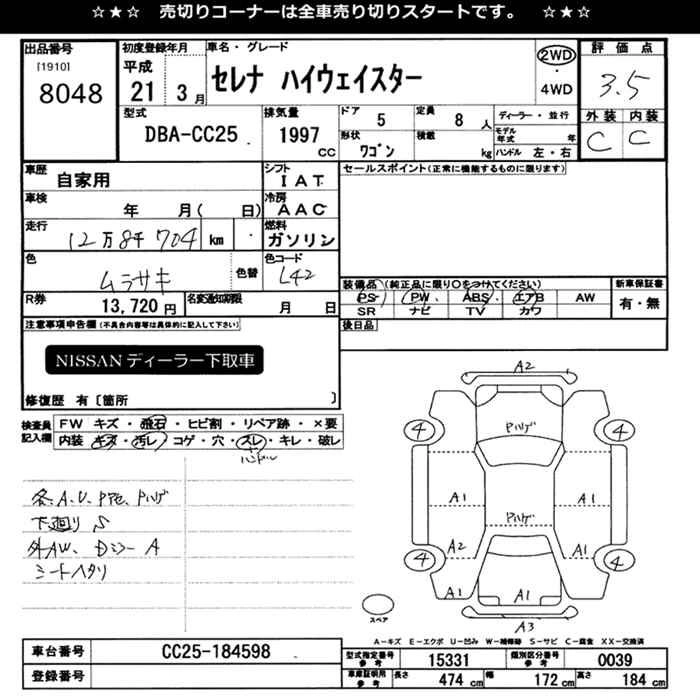 ☆★☆ 売切りコーナーは全車売り切りスタートです。 ☆★☆
出品番号 初度登録年月 車名・グレード 2WD 評価点
[1910] 平成 セレナ ハイウェイスター ・ 3.5
8048 21 3月 4WD
型式 排気量 ドア 定員 ディーラー・並行 外装 内装
DBA-CC25 1997 CC 5 8人 モデル年式 年 C C
形状 積載
ワゴン kg ハンドル 左・右
車歴 自家用 シフト IAT セールスポイント(正常に機能するものに限ります)
車検 年 月( 日) 冷房 AAC
走行 12万8千704 km 燃料 ガソリン
色 ムラサキ 色替 色コード L42
装備品(純正品に限り〇をつけてください) 新車保証書
R券 13,720円 名変通知期限 月 日 PS PW ABS エアB AW 有・無
SR ナビ TV カワ
注意事項申告欄(不具合内容等は具体的に記入して下さい) 後日品
NISSAN ディーラー下取車
修復歴 有〔箇所 〕
検査員記入欄 FW キズ・飛石・ヒビ割・リペア跡・×要
内装 キズ・汚レ・コゲ・穴・スレ・キレ・破レ
ハンドル
各.A.U.PTE.Pハゲ
下廻り S
外AW、Dミラー A
シートヘタリ
A2
Pハゲ
4 4
A1 A1
Pハゲ
A2 A1
4 4
A1 A1 A1
A3
スペア
A-キズ E-エクボ U-凹み W-補修跡 S-サビ C-腐食 XX-交換済
車台番号 CC25-184598 型式指定番号 参考 15331 類別区分番号 参考 0039
登録番号 車庫証明用 参考 長さ 474 cm 幅 172 cm 高さ 184 cm